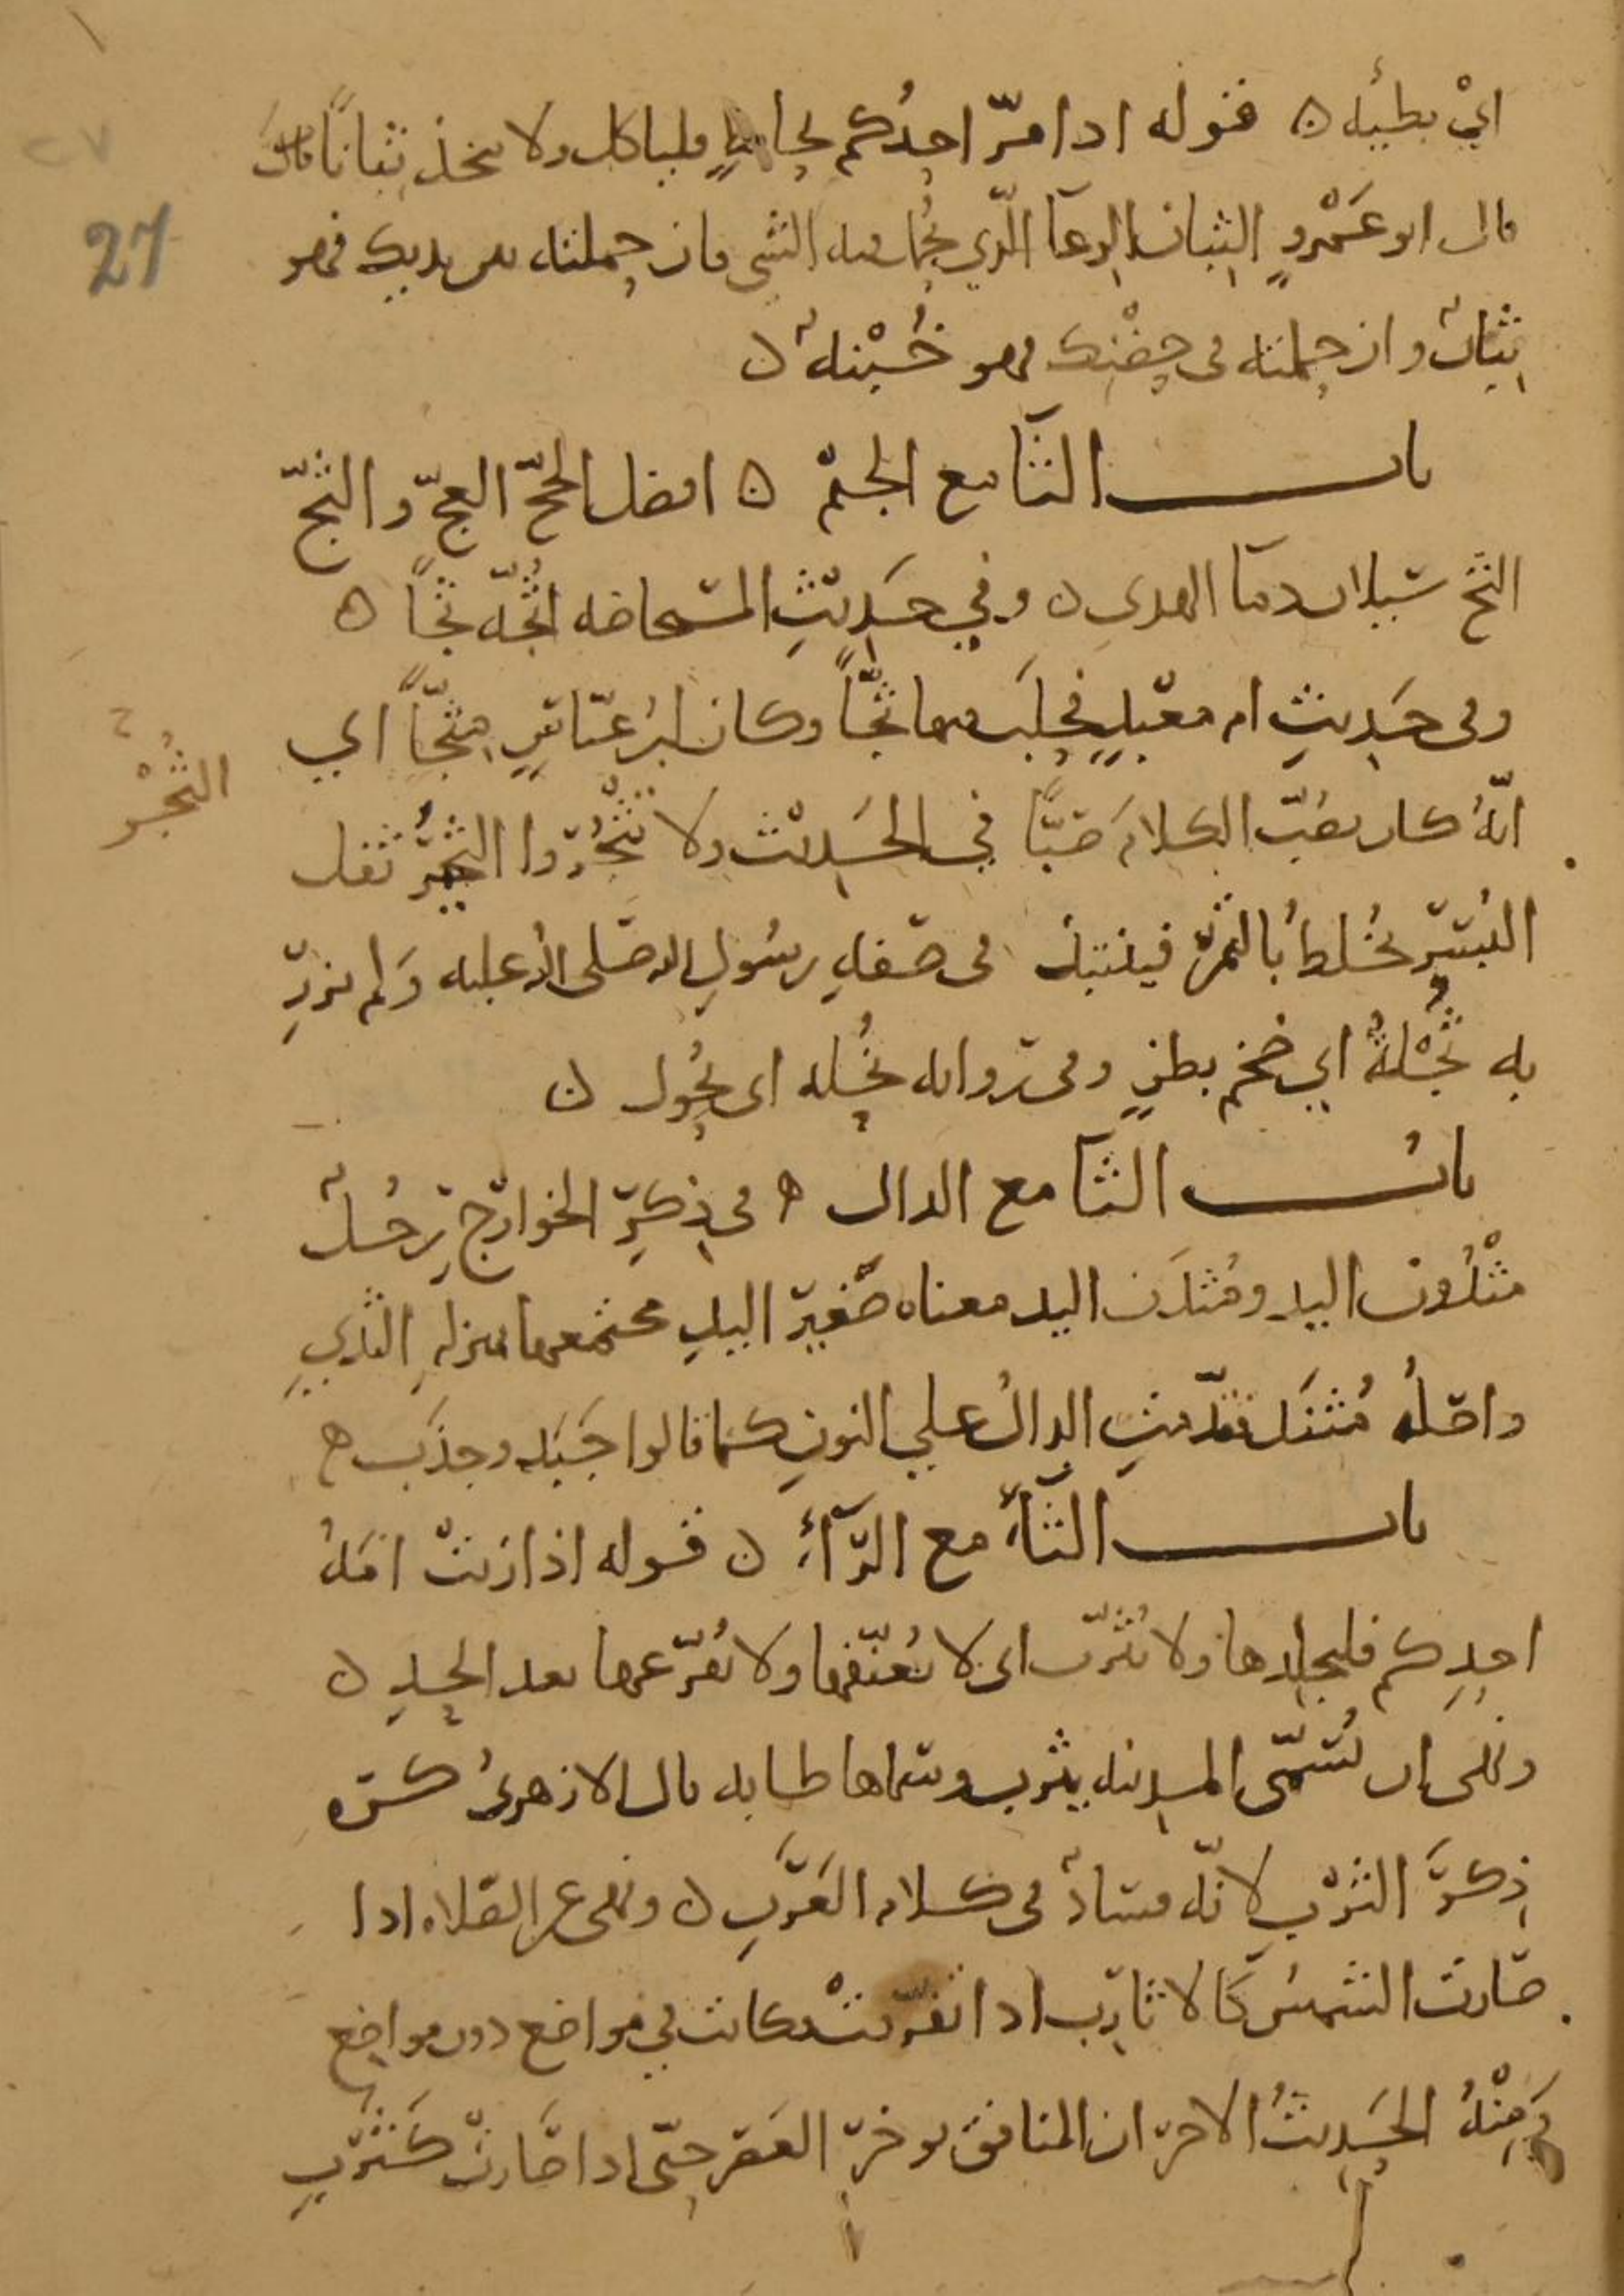 اي بطيئه ه قوله اذا مرّ احدُكم بحايطٍ فلياكل ولا يتخذ ثِبانًا
قال ابو عَمْرٍو الثِبان الوِعآ الّذي يُحمل فيه الشي فان حملته بين يديك فهو
ثِبانٌ وان حملته في حِضْنِك فهو خُبْنةٌ ه
باب الثآ مع الجيم ه افضل الحجّ العجّ والثجّ
الثج سيلان دمآ الهدي ه وفي حَدِيثِ المستحاضه اثُجّه ثجًّا ه
وفي حَدِيثِ ام معْبدٍ فحلَب فيها ثجًّا وكان ابن عبّاسٍ مِثجًّا اي
انّهُ كان يصُبّ الكلامَ صَبًّا في الحَدِيث ولا تَثْجُروا الثجيرُ ثفل
البُسر يُخلطُ بالتمر فينتبذ في صفةِ رسُولِ الله صلى الله عليه وَلم تزرِ
به ثُجْلةٌ اي ضخم بطنٍ وفي روايه نُحْله اي نُحُول ه
بابُ الثآ مع الدال ه في ذِكرِ الخوارج رجُلٌ
مثْدُون اليد ومُثدَن اليد معناه صَغير اليدِ مجتمعها بمنزلهِ الثدي
واصلُه مُثنَد فقدّمتِ الدالُ علي النونِ كما قالوا جَبَذ وجذَب ه
باب الثآء مع الرّآءِ ه قوله اذا زنتْ امَةُ
احدِكم فليجلدها ولا يُثرّب اي لا يُعنّفها ولا يُقرّعها بعد الحدِ ه
ونهى ان تُسَمّى المدينه يثرب وسماها طابه قال الازهريُ كره
ذِكرَ الثرْبِ لانّه فسادٌ في كلام العَرَبِ ه ونهى عن الصلاه اذا
صارت الشمسُ كَالاثارب اذا تفرّقتْ فكانت في مواضع دون مواضِع
وَمِنْهُ الحَدِيثُ الاخر ان المنافق يوخر العَصر حتّى اذا صَارتْ كَثرْبِ
27
٢٧
الثُجْر
ح